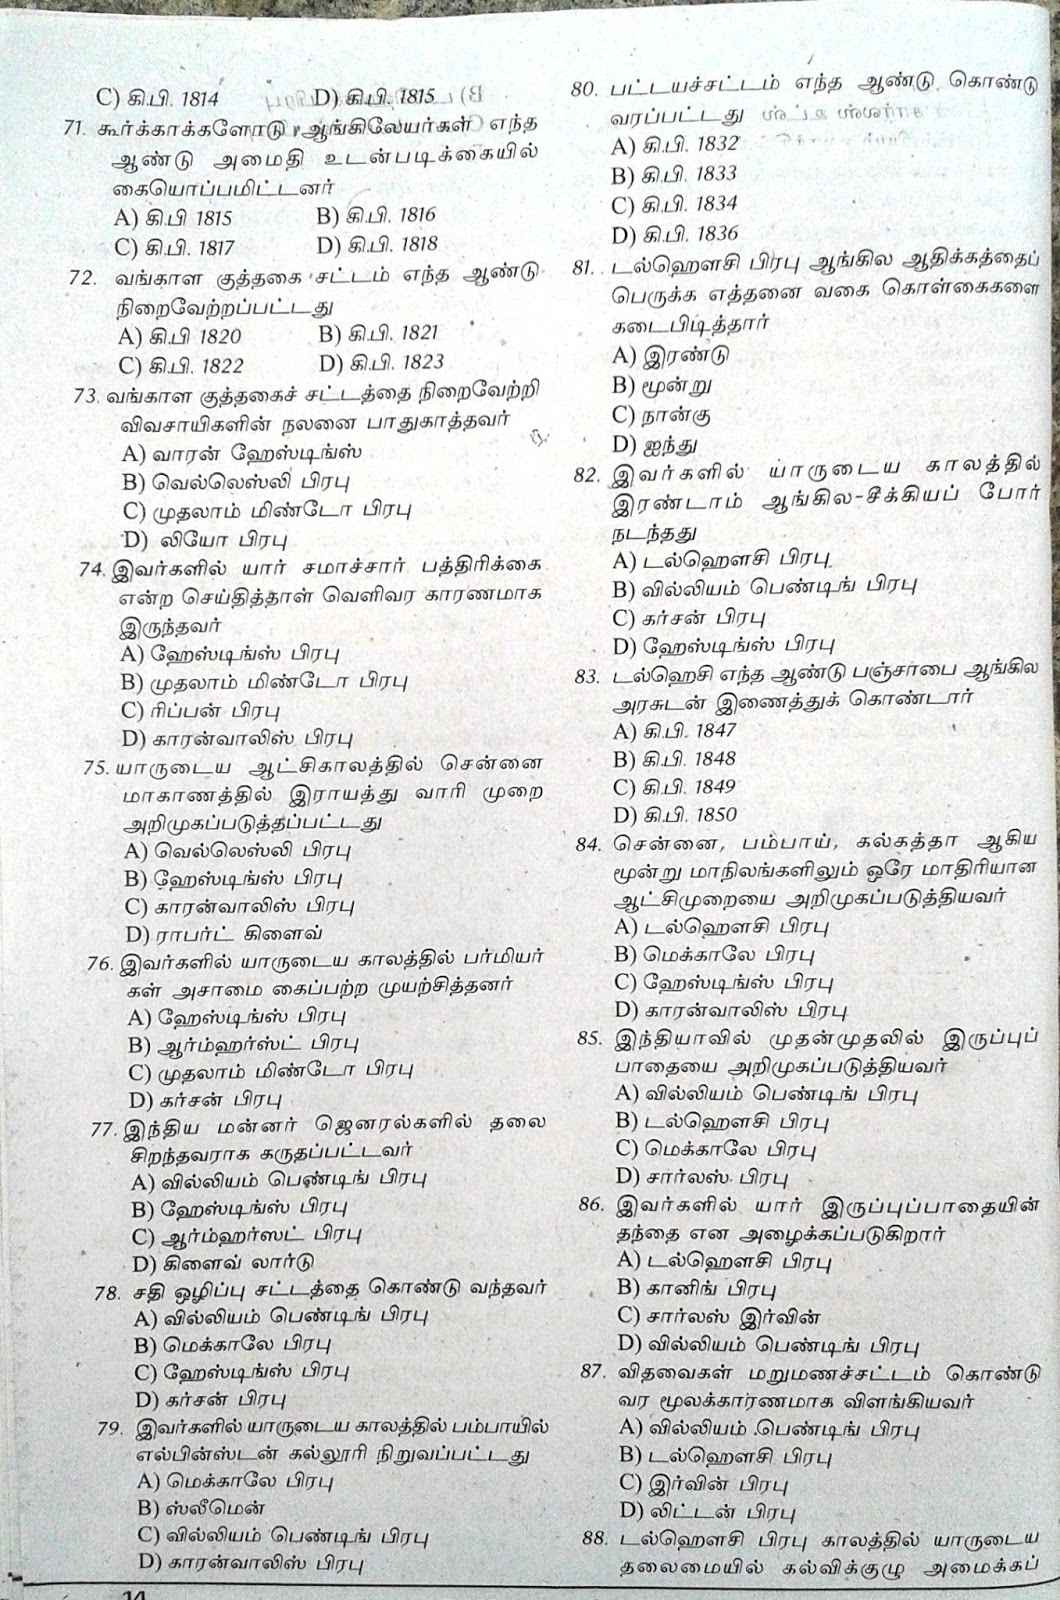 C) கி.பி. 1814 D) கி.பி. 1815
71. கூர்க்காக்களோடு ஆங்கிலேயர்கள் எந்த
ஆண்டு அமைதி உடன்படிக்கையில்
கையொப்பமிட்டனர்
A) கி.பி 1815 B) கி.பி. 1816
C) கி.பி. 1817 D) கி.பி. 1818
72. வங்காள குத்தகை சட்டம் எந்த ஆண்டு
நிறைவேற்றப்பட்டது
A) கி.பி 1820 B) கி.பி. 1821
C) கி.பி. 1822 D) கி.பி. 1823
73. வங்காள குத்தகைச் சட்டத்தை நிறைவேற்றி
விவசாயிகளின் நலனை பாதுகாத்தவர்
A) வாரன் ஹேஸ்டிங்ஸ்
B) வெல்லெஸ்லி பிரபு
C) முதலாம் மிண்டோ பிரபு
D) லியோ பிரபு
74. இவர்களில் யார் சமாச்சார் பத்திரிக்கை
என்ற செய்தித்தாள் வெளிவர காரணமாக
இருந்தவர்
A) ஹேஸ்டிங்ஸ் பிரபு
B) முதலாம் மிண்டோ பிரபு
C) ரிப்பன் பிரபு
D) காரன்வாலிஸ் பிரபு
75. யாருடைய ஆட்சிகாலத்தில் சென்னை
மாகாணத்தில் இராயத்து வாரி முறை
அறிமுகப்படுத்தப்பட்டது
A) வெல்லெஸ்லி பிரபு
B) ஹேஸ்டிங்ஸ் பிரபு
C) காரன்வாலிஸ் பிரபு
D) ராபர்ட் கிளைவ்
76. இவர்களில் யாருடைய காலத்தில் பர்மியர்
கள் அசாமை கைப்பற்ற முயற்சித்தனர்
A) ஹேஸ்டிங்ஸ் பிரபு
B) ஆர்ம்ஹர்ஸ்ட் பிரபு
C) முதலாம் மிண்டோ பிரபு
D) கர்சன் பிரபு
77. இந்திய மன்னர் ஜெனரல்களில் தலை
சிறந்தவராக கருதப்பட்டவர்
A) வில்லியம் பெண்டிங் பிரபு
B) ஹேஸ்டிங்ஸ் பிரபு
C) ஆர்ம்ஹர்ஸட் பிரபு
D) கிளைவ் லார்டு
78. சதி ஒழிப்பு சட்டத்தை கொண்டு வந்தவர்
A) வில்லியம் பெண்டிங் பிரபு
B) மெக்காலே பிரபு
C) ஹேஸ்டிங்ஸ் பிரபு
D) கர்சன் பிரபு
79. இவர்களில் யாருடைய காலத்தில் பம்பாயில்
எல்பின்ஸ்டன் கல்லூரி நிறுவப்பட்டது
A) மெக்காலே பிரபு
B) ஸ்லீமென்
C) வில்லியம் பெண்டிங் பிரபு
D) காரன்வாலிஸ் பிரபு
80. பட்டயச்சட்டம் எந்த ஆண்டு கொண்டு
வரப்பட்டது
A) கி.பி. 1832
B) கி.பி. 1833
C) கி.பி. 1834
D) கி.பி. 1836
81. டல்ஹௌசி பிரபு ஆங்கில ஆதிக்கத்தைப்
பெருக்க எத்தனை வகை கொள்கைகளை
கடைபிடித்தார்
A) இரண்டு
B) மூன்று
C) நான்கு
D) ஐந்து
82. இவர்களில் யாருடைய காலத்தில்
இரண்டாம் ஆங்கில-சீக்கியப் போர்
நடந்தது
A) டல்ஹௌசி பிரபு
B) வில்லியம் பெண்டிங் பிரபு
C) கர்சன் பிரபு
D) ஹேஸ்டிங்ஸ் பிரபு
83. டல்ஹெசி எந்த ஆண்டு பஞ்சர்பை ஆங்கில
அரசுடன் இணைத்துக் கொண்டார்
A) கி.பி. 1847
B) கி.பி. 1848
C) கி.பி. 1849
D) கி.பி. 1850
84. சென்னை, பம்பாய், கல்கத்தா ஆகிய
மூன்று மாநிலங்களிலும் ஒரே மாதிரியான
ஆட்சிமுறையை அறிமுகப்படுத்தியவர்
A) டல்ஹௌசி பிரபு
B) மெக்காலே பிரபு
C) ஹேஸ்டிங்ஸ் பிரபு
D) காரன்வாலிஸ் பிரபு
85. இந்தியாவில் முதன்முதலில் இருப்புப்
பாதையை அறிமுகப்படுத்தியவர்
A) வில்லியம் பெண்டிங் பிரபு
B) டல்ஹௌசி பிரபு
C) மெக்காலே பிரபு
D) சார்லஸ் பிரபு
86. இவர்களில் யார் இருப்புப்பாதையின்
தந்தை என அழைக்கப்படுகிறார்
A) டல்ஹௌசி பிரபு
B) கானிங் பிரபு
C) சார்லஸ் இர்வின்
D) வில்லியம் பெண்டிங் பிரபு
87. விதவைகள் மறுமணச்சட்டம் கொண்டு
வர மூலக்காரணமாக விளங்கியவர்
A) வில்லியம் பெண்டிங் பிரபு
B) டல்ஹௌசி பிரபு
C) இர்வின் பிரபு
D) லிட்டன் பிரபு
88. டல்ஹௌசி பிரபு காலத்தில் யாருடைய
தலைமையில் கல்விக்குழு அமைக்கப்